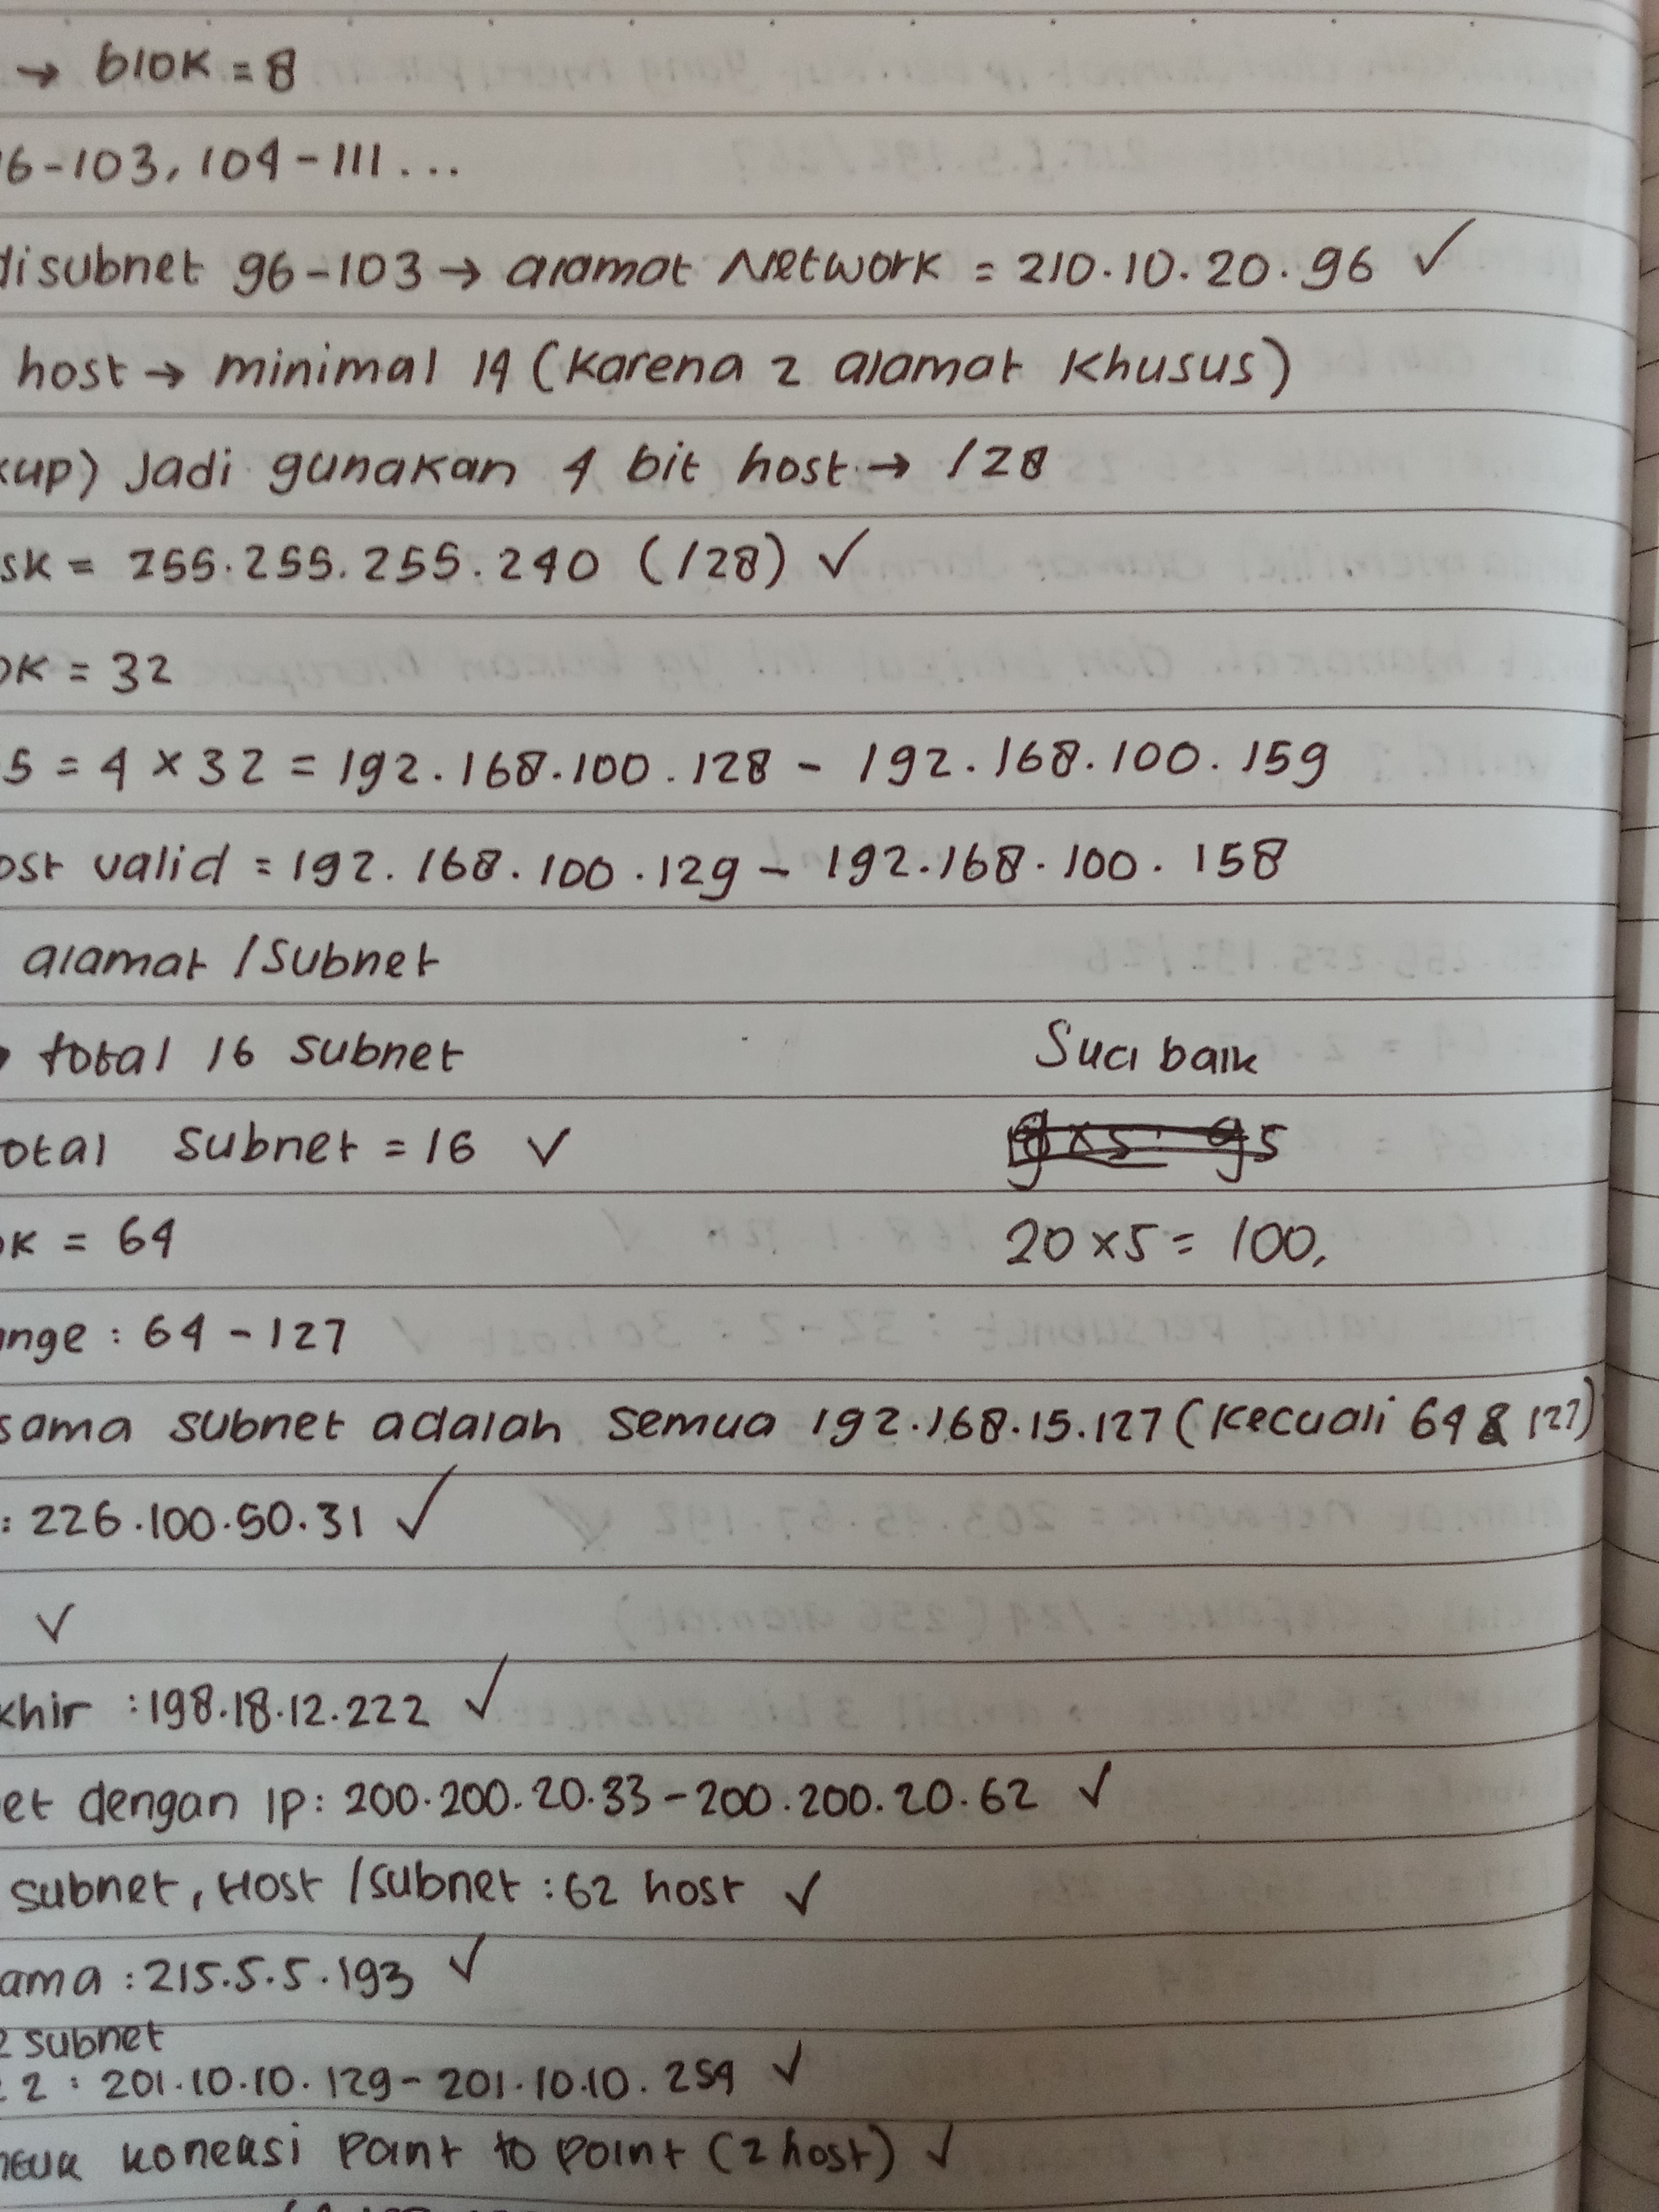 → blok = 8
96-103, 104-111...
disubnet 96-103 → alamat Network = 210.10.20.96 ✓
host → minimal 14 (Karena 2 alamat Khusus)
kup) Jadi gunakan 4 bit host → /28
sk = 255.255.255.240 (/28) ✓
ok = 32
5 = 4 x 32 = 192.168.100.128 - 192.168.100.159
ost valid = 192.168.100.129 - 192.168.100.158
alamat /Subnet
total 16 subnet
Suci baik
otal subnet = 16 ✓
ok = 64
20x5 = 100,
nge : 64 - 127
sama subnet adalah semua 192.168.15.127 (Kecuali 64 & 127)
: 226.100.50.31 ✓
✓
khir : 198.18.12.222 ✓
et dengan IP: 200.200.20.33 - 200.200.20.62 ✓
subnet, Host /subnet : 62 host ✓
ama : 215.5.5.193 ✓
2 subnet
2 : 201.10.10.129 - 201.10.10.254 ✓
ntuk koneksi Point to point (2 host) ✓